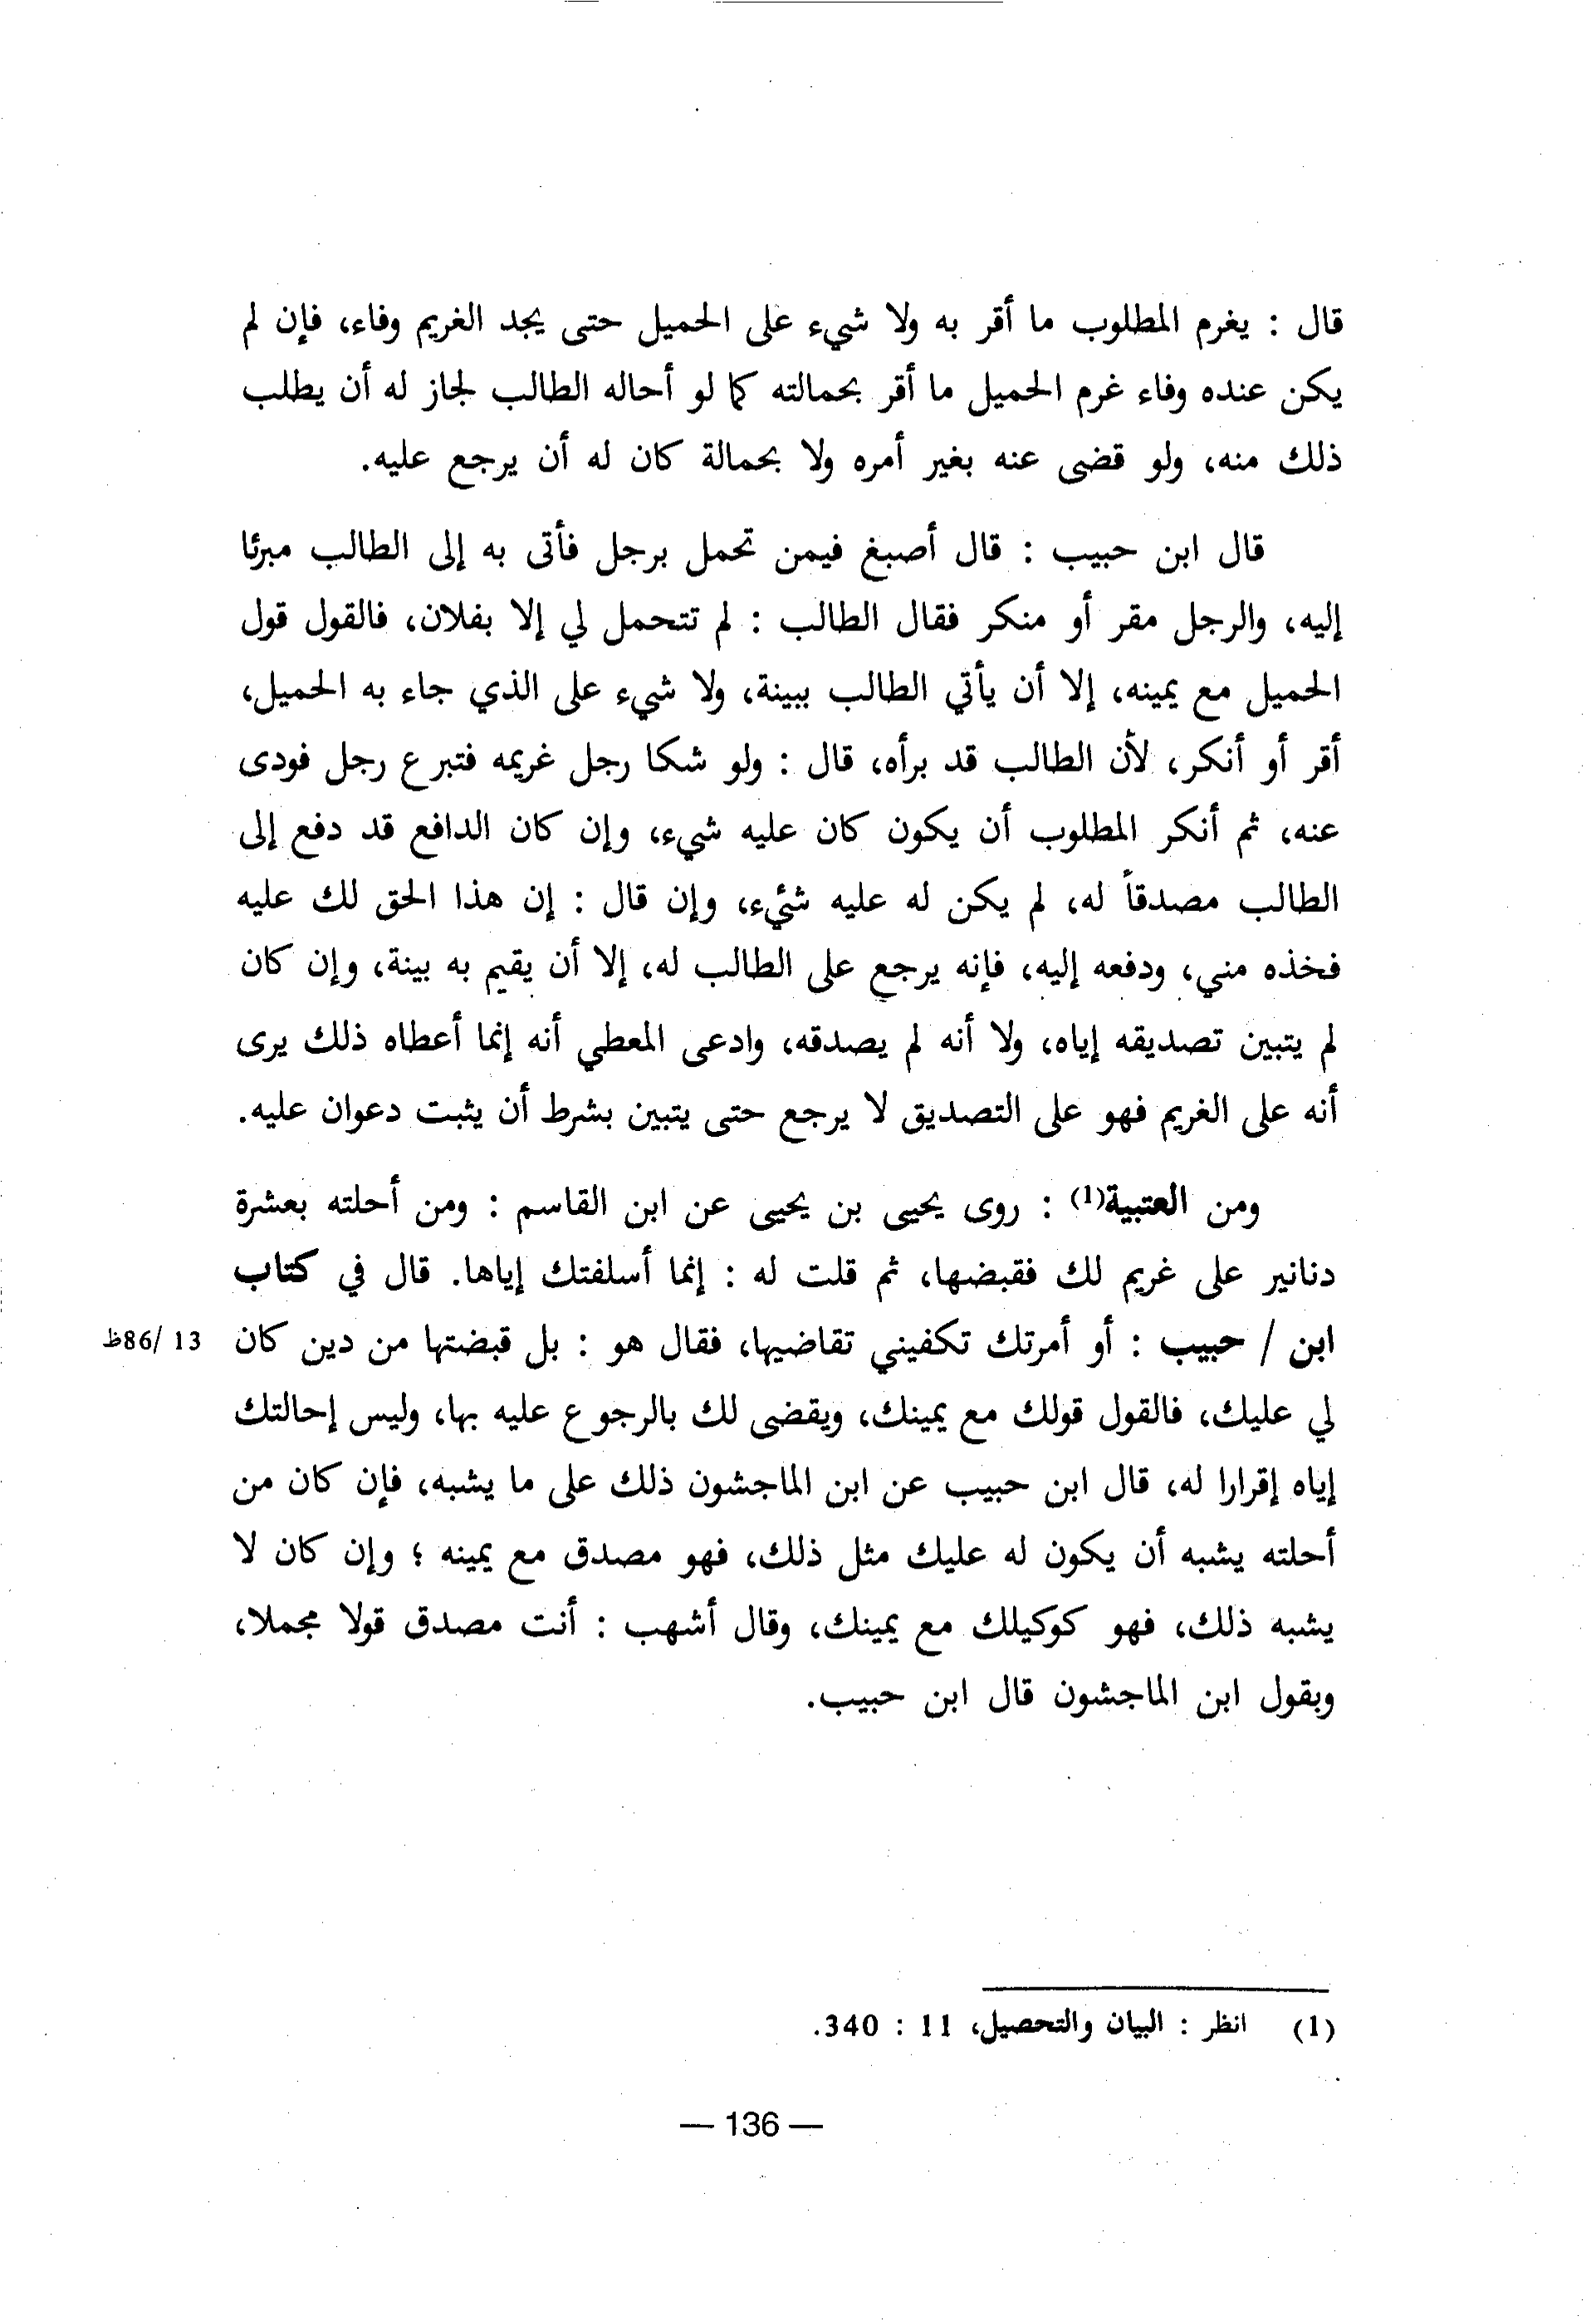 قال : يغرم المطلوب ما أقر به ولا شيء على الحميل حتى يجد الغريم وفاء، فإن لم
يكن عنده وفاء غرم الحميل ما أقر بحمالته كما لو أحاله الطالب لجاز له أن يطلب
ذلك منه، ولو قضى عنه بغير أمره ولا بحمالة كان له أن يرجع عليه.
قال ابن حبيب : قال أصبغ فيمن تحمل برجل فأتى به إلى الطالب مبرئا
إليه، والرجل مقر أو منكر فقال الطالب : لم تتحمل لي إلا بفلان، فالقول قول
الحميل مع يمينه، إلا أن يأتي الطالب ببينة، ولا شيء على الذي جاء به الحميل،
أقر أو أنكر، لأن الطالب قد برأه، قال : ولو شكا رجل غريمه فتبرع رجل فودى
عنه، ثم أنكر المطلوب أن يكون كان عليه شيء، وإن كان الدافع قد دفع إلى
الطالب مصدقاً له، لم يكن له عليه شئء، وإن قال : إن هذا الحق لك عليه
فخذه مني، ودفعه إليه، فإنه يرجع على الطالب له، إلا أن يقيم به بينة، وإن كان
لم يتبين تصديقه إياه، ولا أنه لم يصدقه، وادعى المعطي أنه إنما أعطاه ذلك يرى
أنه على الغريم فهو على التصديق لا يرجع حتى يتبين بشرط أن يثبت دعوان عليه.
ومن العتبية(1) : روى يحيى بن يحيى عن ابن القاسم : ومن أحلته بعشرة
دنانير على غريم لك فقبضها، ثم قلت له : إنما أسلفتك إياها. قال في كتاب
ابن / حبيب : أو أمرتك تكفيني تقاضيها، فقال هو : بل قبضتها من دين كان 13 /86ظ
لي عليك، فالقول قولك مع يمينك، ويقضى لك بالرجوع عليه بها، وليس إحالتك
إياه إقرارا له، قال ابن حبيب عن ابن الماجشون ذلك على ما يشبه، فإن كان من
أحلته يشبه أن يكون له عليك مثل ذلك، فهو مصدق مع يمينه ؛ وإن كان لا
يشبه ذلك، فهو كوكيلك مع يمينك، وقال أشهب : أنت مصدق قولا مجملا،
وبقول ابن الماجشون قال ابن حبيب.
(1) انظر : البيان والتحصيل، 11 : 340.
— 136 —